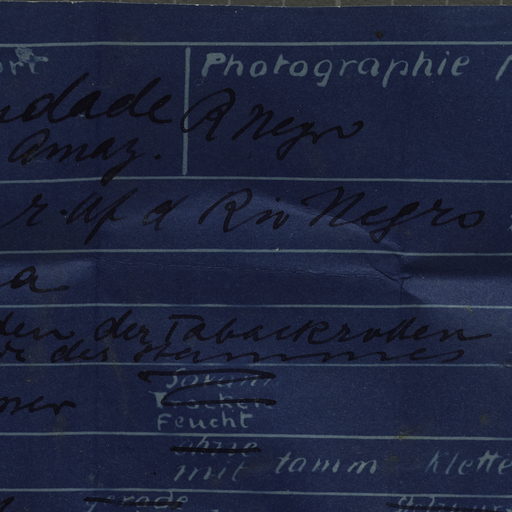 ort Photographie
dade R Negro
Amaz.
r. Uf d Rio Negro
a
den der Tabackrollen
des Stammes
Trocken
Feucht
ohne
mit Stamm klette
gerade